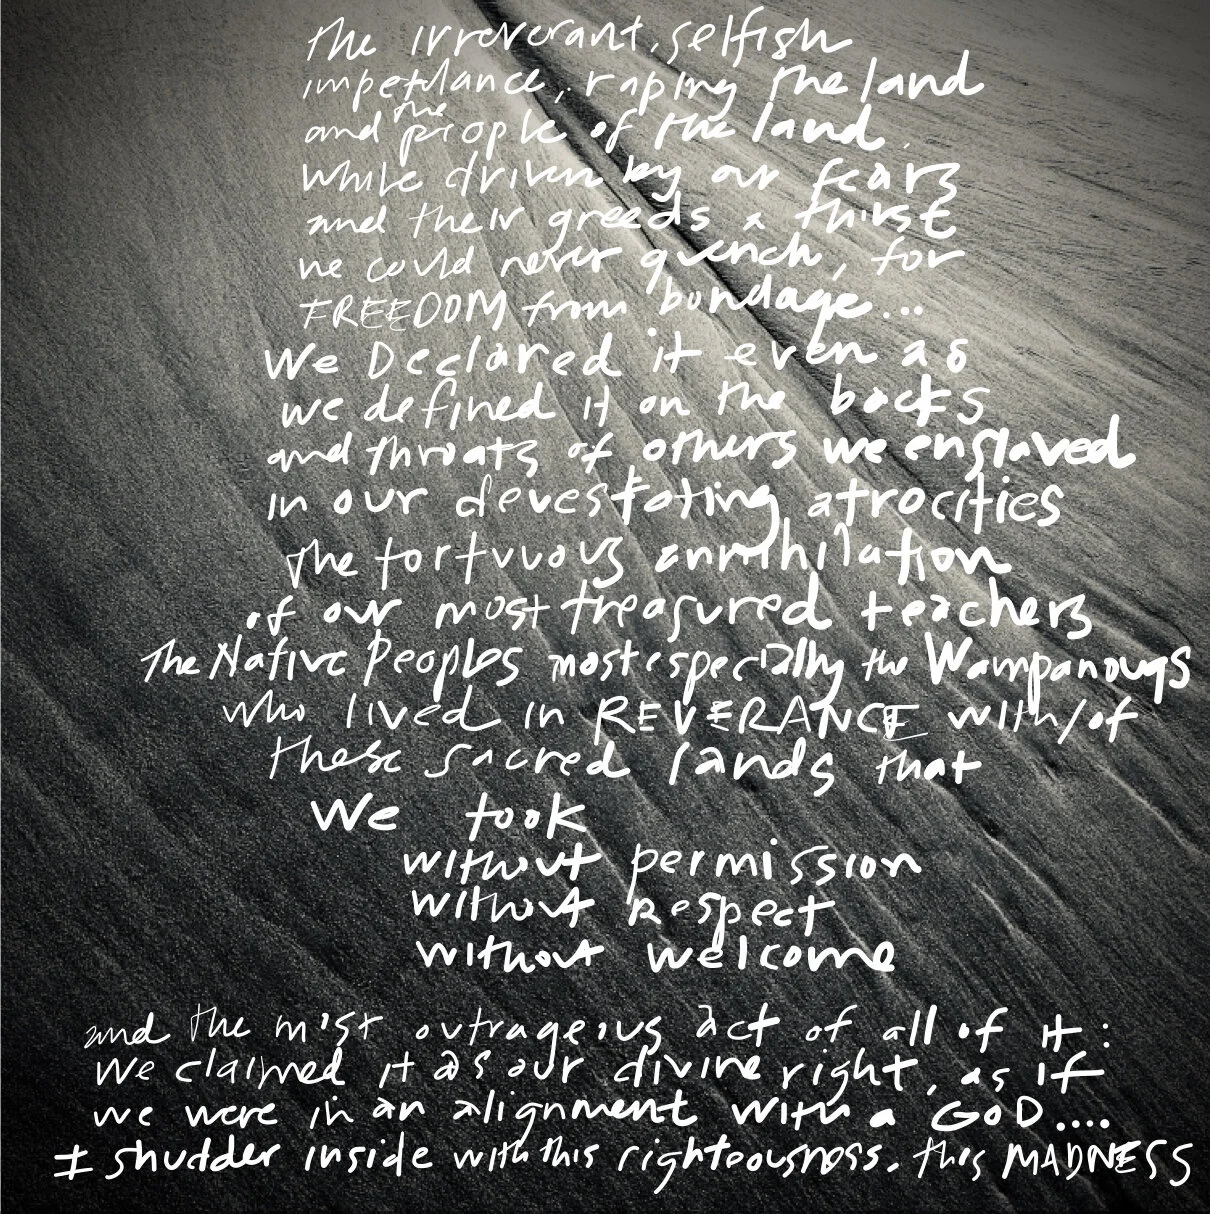 the irreverant, selfish
impetulance, raping the land
and the people of the land,
while driven by our fears
and their greeds & thirst
we could never quench, for
FREEDOM from bondage...
We Declared it even as
we defined it on the backs
and throats of others we enslaved
in our devestating atrocities
The tortuous annihilation
of our most treasured teachers
The Native Peoples most especially the Wampanougs
who lived in REVERANCE with/of
these sacred lands that
We took
without permission
without respect
without welcome
and the most outrageous act of all of it:
we claimed it as our divine right, as if
we were in an alignment with a GOD....
I shudder inside with this righteousness. this MADNESS